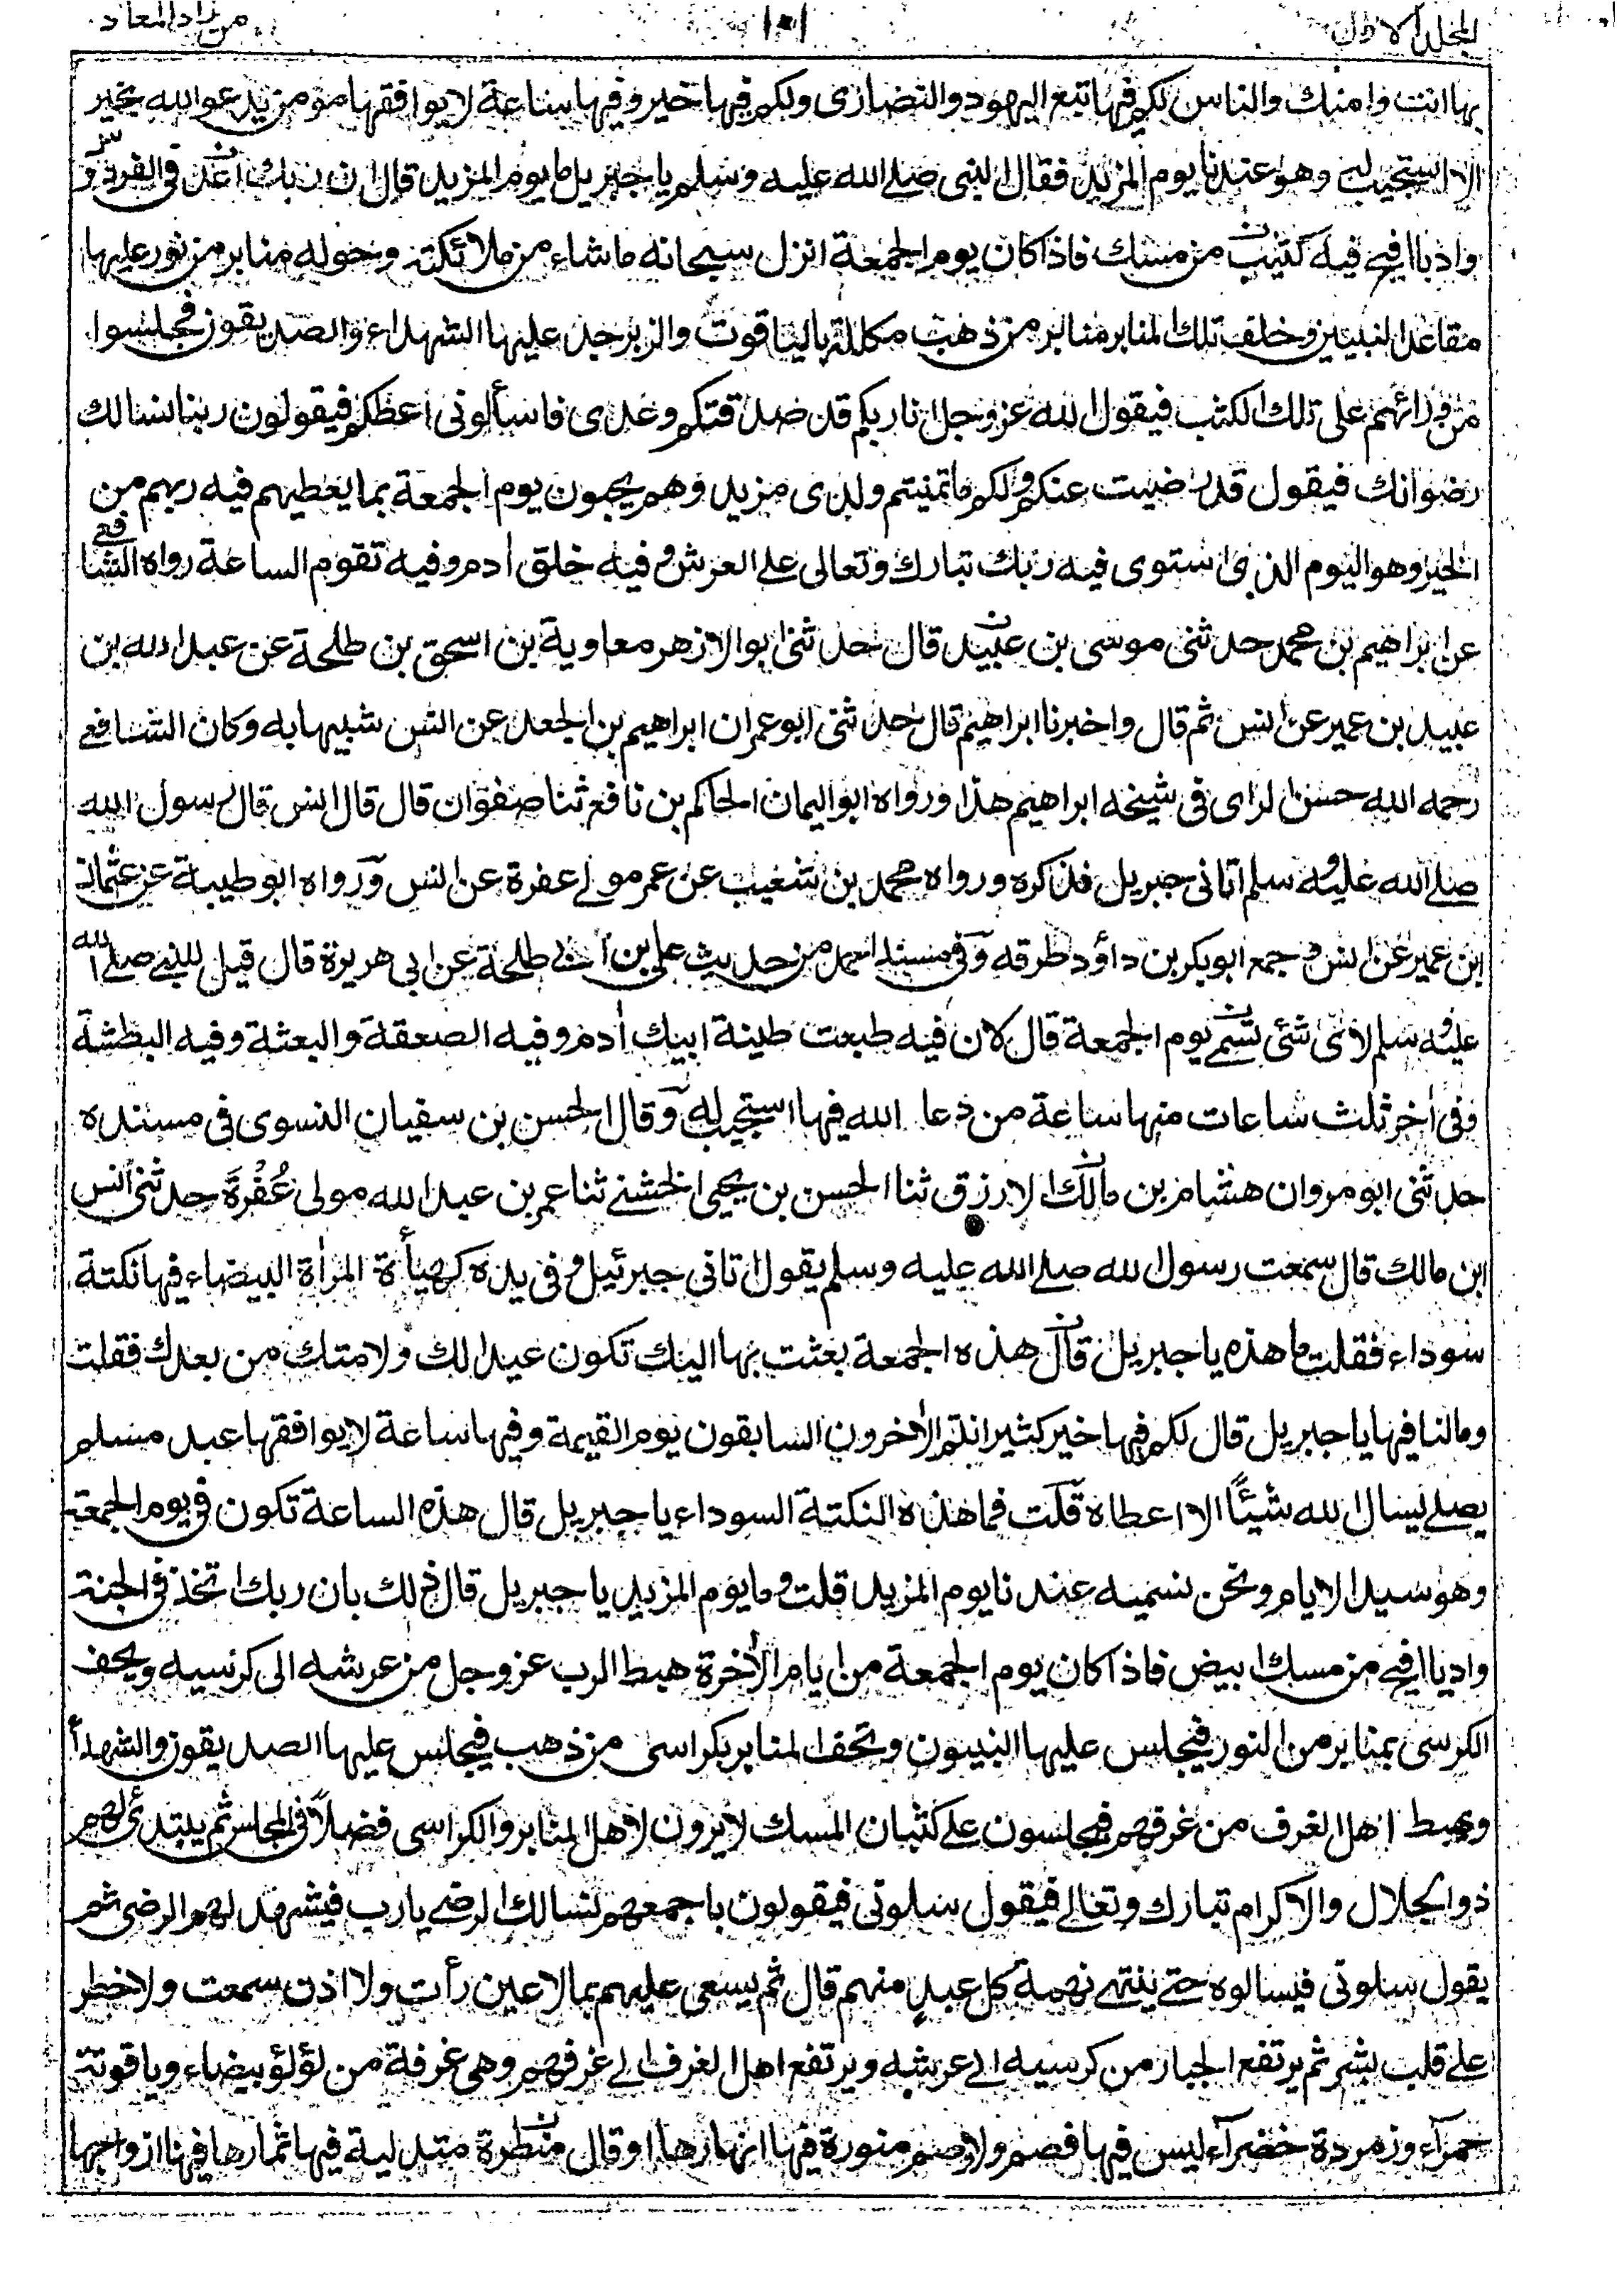 المجلد الاول ١٠١ من زاد المعاد
بها انت وامتك والناس لكم فيها تبع اليهود والنصارى ولكم فيها خير وفيها ساعة لا يوافقها مؤمن يدعو الله بخير
الا استجيب له وهو عندنا يوم المزيد فقال النبى صلے الله عليه وسلم يا جبريل ما يوم المزيد قال ان ربك اتخذ فى الفردوس
واديا افيح فيه كثيب من مسك فاذا كان يوم الجمعة انزل سبحانه ما شاء من ملائكته وحوله منابر من نور عليها
مقاعد النبيين وخلف تلك المنابر منابر من ذهب مكللة بالياقوت والزبرجد عليها الشهداء والصديقون فجلسوا
من ورائهم على تلك الكثب فيقول الله عز وجل انا ربكم قد صدقتكم وعدى فاسألونى اعطكم فيقولون ربنا نسالك
رضوانك فيقول قد رضيت عنكم ولكم ما تمنيتم ولدى مزيد وهم يحبون يوم الجمعة بما يعطيهم فيه ربهم من
الخير وهو اليوم الذى استوى فيه ربك تبارك وتعالى على العرش وفيه خلق أدم وفيه تقوم الساعة رواه الشافعے
عن ابراهيم بن محمد حدثنى موسى بن عبيد قال حدثنى ابو الازهر معاوية بن اسحق بن طلحة عن عبد الله بن
عبيد بن عمير عن انس ثم قال واخبرنا ابراهيم قال حدثنى ابو عمران ابراهيم بن الجعد عن انس شبيها به وكان الشافعے
رحمه الله حسن الراى فى شيخه ابراهيم هذا ورواه ابو اليمان الحاكم بن نافع ثنا صفوان قال قال انس قال رسول الله
صلے الله عليه وسلم اتانى جبريل فذكره ورواه محمد بن شعيب عن عمر مولے عفرة عن انس ورواه ابو طيبة عن عثمان
ابن عمير عن انس وجمع ابو بكر بن داؤد طرقه وفى مسند احمد من حديث على بن ابى طلحة عن ابى هريرة قال قيل للنبے صلے الله
عليه وسلم لاى شئ تسمے يوم الجمعة قال لان فيه طبعت طينة ابيك أدم وفيه الصعقة والبعثة وفيه البطشة
وفى أخر ثلث ساعات منها ساعة من دعا الله فيها استجيب له وقال الحسن بن سفيان النسوى فى مسنده
حدثنى ابو مروان هشام بن مالك الازرق ثنا الحسن بن يحيى الخشنے ثنا عمر بن عبد الله مولى عُفْرَةَ حدثنى انس
ابن مالك قال سمعت رسول الله صلے الله عليه وسلم يقول اتانى جبرئيل وفى يده كهيأة المرأة البيضاء فيها نكتة
سوداء فقلت ما هذه يا جبريل قال هذه الجمعة بعثت بها اليك تكون عيدا لك ولامتك من بعدك فقلت
وما لنا فيها يا جبريل قال لكم فيها خير كثير انتم الأخرون السابقون يوم القيمة وفيها ساعة لا يوافقها عبد مسلم
يصلے يسال الله شيئًا الا اعطاه قلت فما هذه النكتة السوداء يا جبريل قال هذه الساعة تكون فى يوم الجمعة
وهو سيد الايام ونحن نسميه عندنا يوم المزيد قلت وما يوم المزيد يا جبريل قال ذلك بان ربك اتخذ فى الجنة
واديا افيح من مسك ابيض فاذا كان يوم الجمعة من ايام الأخرة هبط الرب عز وجل من عرشه الى كرسيه ويحف
الكرسى بمنابر من النور فيجلس عليها النبيون وتحف المنابر بكراسى من ذهب فيجلس عليها الصديقون والشهدأ
ويهبط اهل الغرف من غرفهم فيجلسون علے كثبان المسك لا يرون لاهل المنابر والكراسى فضلاً فى المجلس ثم يبتدئ لهم
ذو الجلال والاكرام تبارك وتعالے فيقول سلونى فيقولون باجمعهم نسالك الرضے يا رب فيشهد لهم الرضى ثم
يقول سلونى فيسالوه حتے ينتهے نهمة كل عبدٍ منهم قال ثم يسعى عليهم بما لا عين رأت ولا اذن سمعت ولا خطر
علے قلب بشر ثم يرتفع الجبار من كرسيه الے عرشه ويرتفع اهل الغرف الے غرفهم وهى غرفة من لؤلؤ بيضاء وياقوتة
حمرآء وزمردة خضرآء ليس فيها فصم ولا وصم منورة فيها انهارها او قال منطرة متدلية فيها ثمارها فيها ازواجها